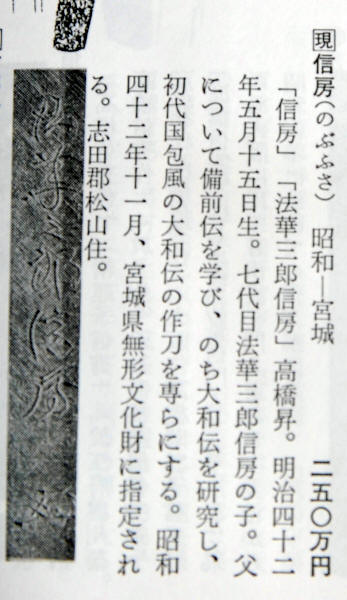 現 信房(のぶふさ) 昭和―宮城 二五〇万円
「信房」「法華三郎信房」高橋昇。明治四十二
年五月十五日生。七代目法華三郎信房の子。父
について備前伝を学び、のち大和伝を研究し、
初代国包風の大和伝の作刀を専らにする。昭和
四十二年十一月、宮城県無形文化財に指定され
る。志田郡松山住。